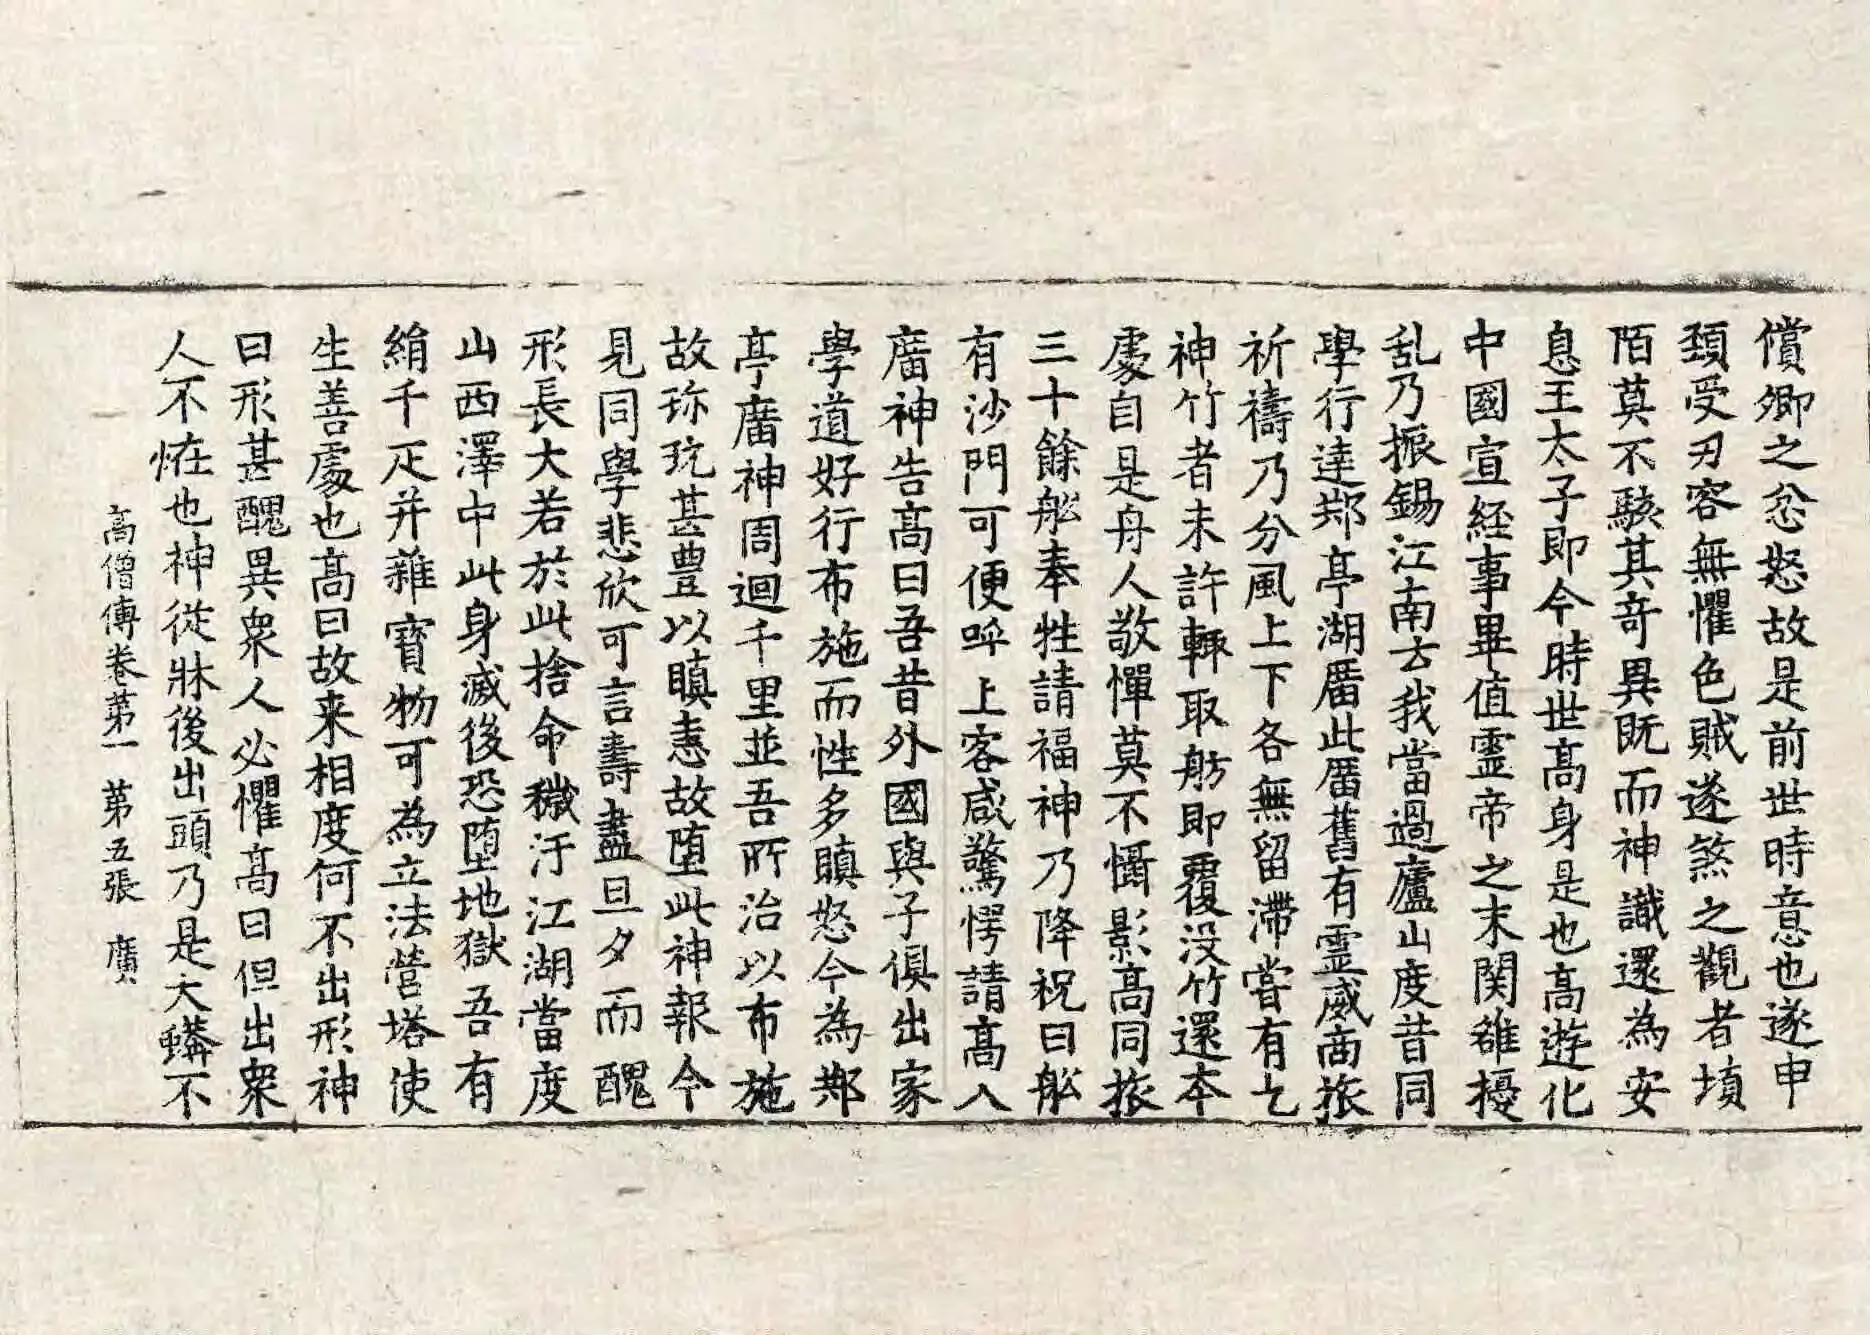 償卿之忿怒故是前世時意也遂申
頚受刃容無懼色賊遂煞之觀者填
陌莫不駭其竒異既而神識還為安
息王太子即今時世髙身是也髙遊化
中國宣経事畢值霊帝之末関雒擾
乱乃振錫江南云我當過廬山度昔同
學行逹䢼亭湖廟此廟舊有霊威商旅
祈禱乃分風上下各無留滯甞有乞
神竹者未許輙取舫即覆没竹還本
處自是舟人敬憚莫不懾影髙同旅
三十餘舩奉牲請福神乃降祝曰舩
有沙門可便呼上客咸驚愕請髙入
廟神告髙曰吾昔外國與子俱出家
學道好行布施而性多瞋怒今為䢼
亭廟神周迴千里並吾所治以布施
故珎玩甚豊以瞋恚故堕此神報今
見同學悲欣可言壽盡旦夕而醜
形長大若於此捨命穢汙江湖當度
山西澤中此身滅後恐堕地獄吾有
絹千疋并雜寳物可為立法營塔使
生善處也髙曰故来相度何不出形神
曰形甚醜異衆人必懼髙曰但出衆
人不恠也神從牀後出頭乃是大蟒不
髙僧傳卷苐一 苐五張 廣